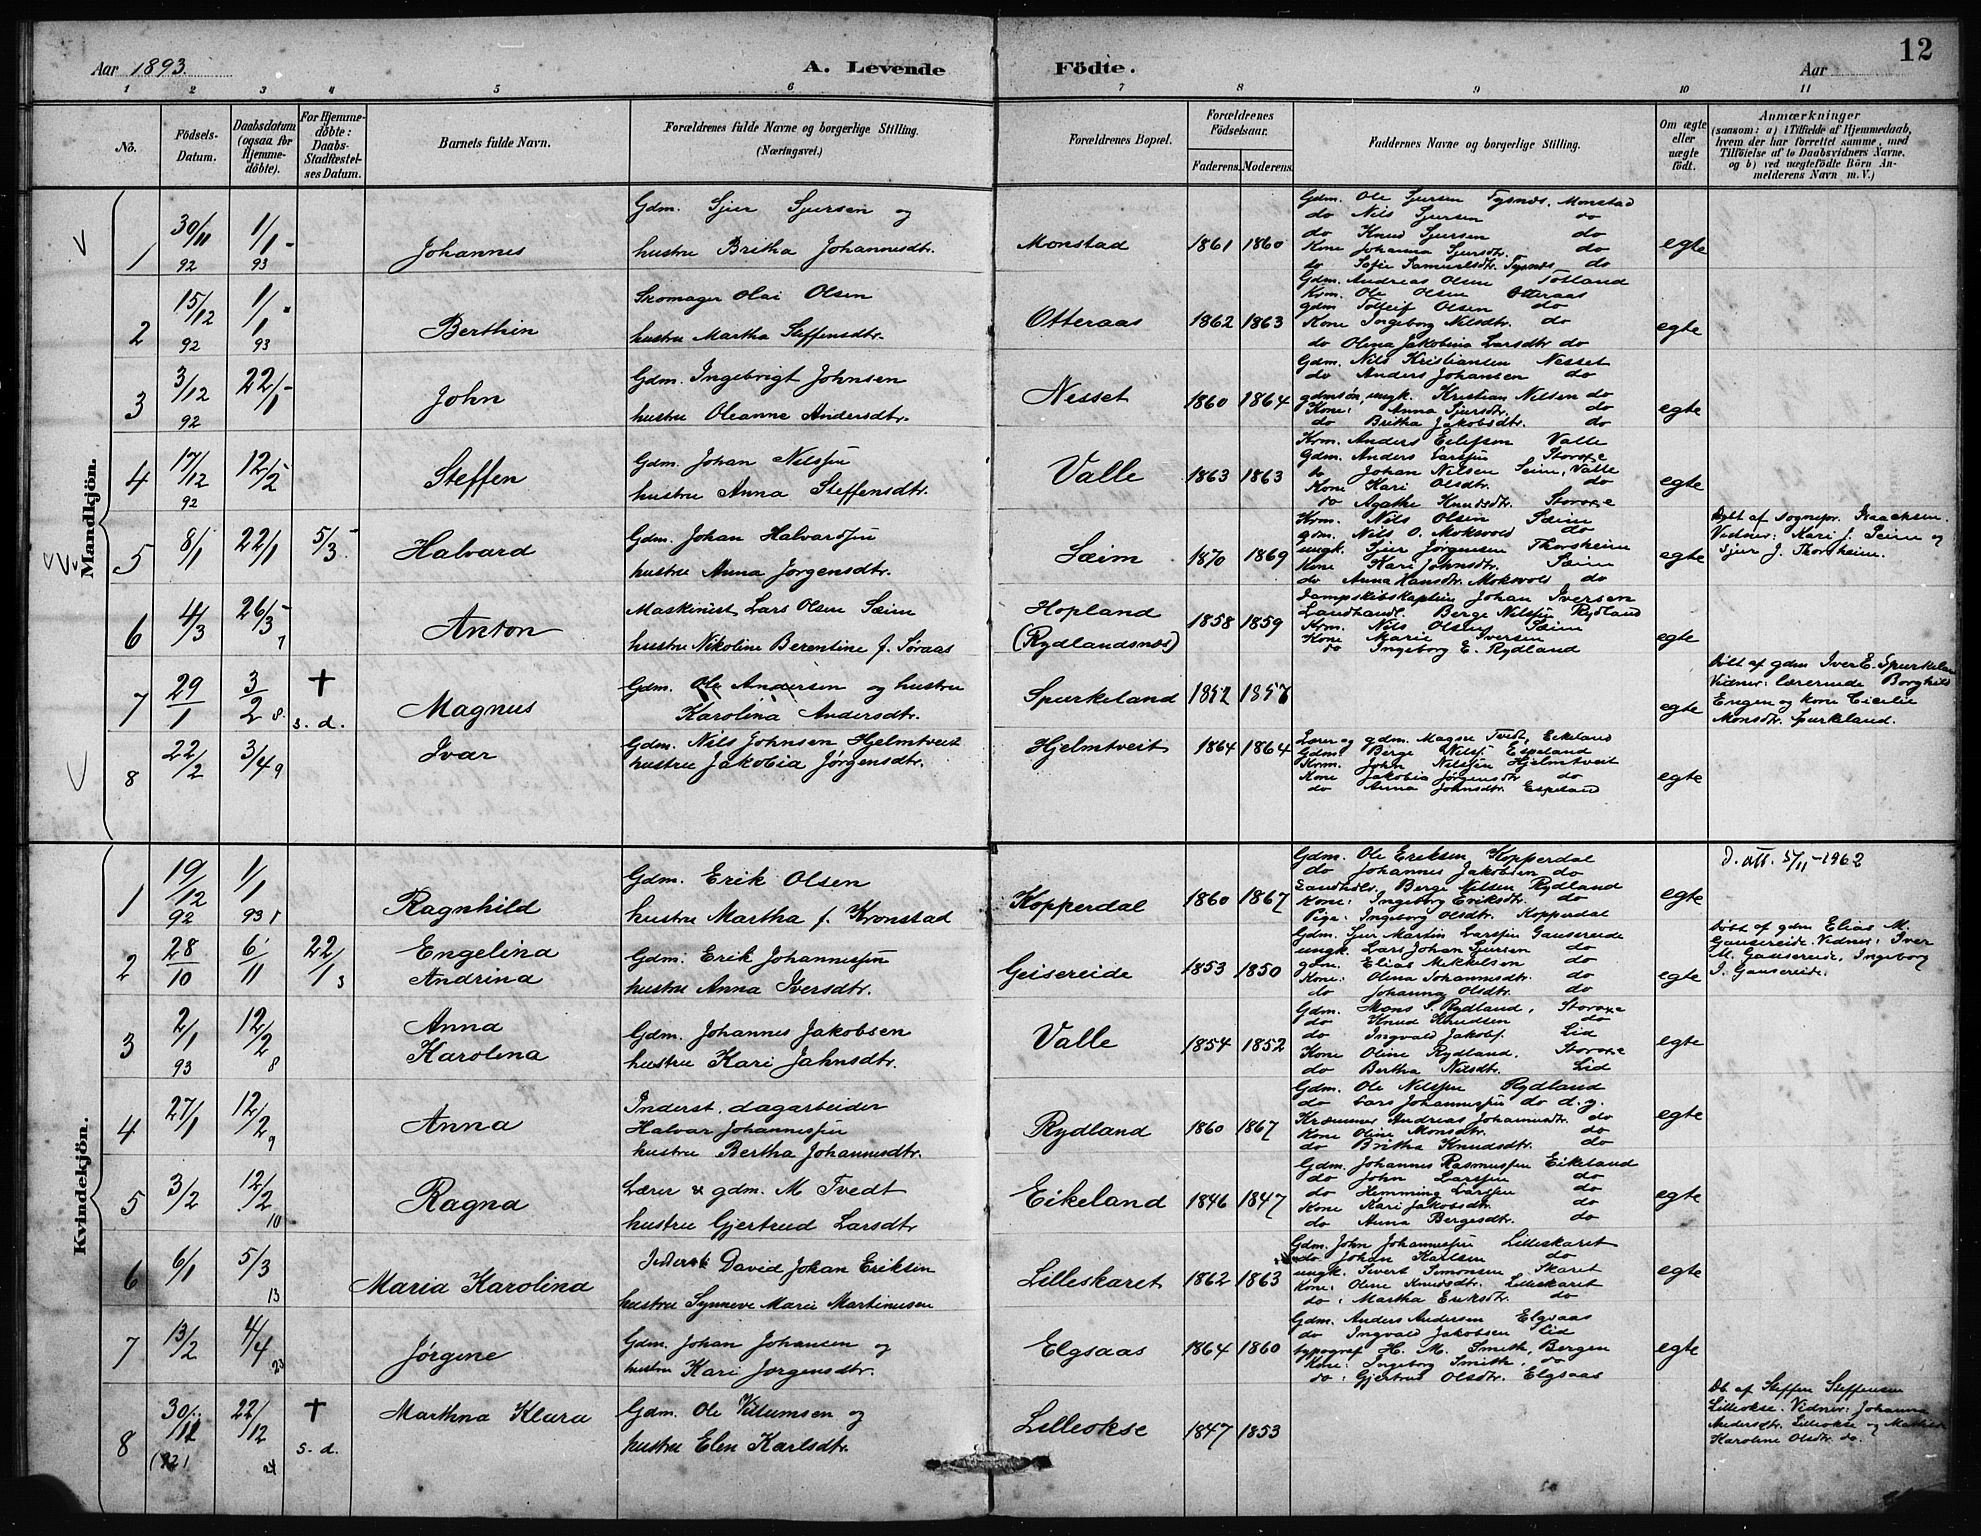 Aar 1893. A. Levende Födte. Aar 12
1 2 3 4 5 6 7 8 9 10 11
No.
Födsels-Datum.
Daabsdatum (ogsaa for Hjemme-døbte).
For Hjemme-døbte: Daabs-Stadfæstel-ses Datum.
Barnets fulde Navn.
Forældrenes fulde Navne og borgerlige Stilling.
(Næringsvei.)
Forældrenes Bopæl.
Forældrenes Födselsaar.
Faderens. Moderens.
Faddernes Navne og borgerlige Stilling.
Om ægte eller uægte födt.
Anmærkninger
(saasom: a) i Tilfælde af Hjemmedaab,
hvem der har forrettet samme, med
Tilföielse af to Daabsvidners Navne,
og b) ved uægtefödte Börn An-
melderens Navn m. V.)
Mandkjön.
1 30/11 92 1/1 93 Johannes
Gdm. Sjur Sjursen og
hustru Britha Johannesdtr.
Monstad 1861 1860
Gdm. Ole Sjursen Tysnes, Monstad
do Nils Sjursen do
do Knud Sjursen do
Kone Johanna Sjursdtr. do
do Sofie Samuelsdtr. Tysnes do
egte
2 15/12 92 1/1 93 Berthin
Skomager Olai Olsen
hustru Martha Steffensdtr.
Otteraas 1862 1863
Gdm. Andreas Olsen Totland
Krm. Ole Olsen Otteraas
gdm Tolleif Olsen do
Kone Ingeborg Nilsdtr. do
do Olina Jakobina Larsdtr do
egte
3 3/12 92 22/1 John
Gdm. Ingebrigt Johnsen
hustru Oleanne Andersdtr.
Nesset 1860 1864
Gdm. Nils Kristiansen Nesset
do Anders Johansen do
gdmsøn, ungk. Kristian Nilsen do
Kone: Anna Sjursdtr. do
do Britha Jakobsdtr. do
egte
4 17/12 92 12/2 Steffen
Gdm. Johan Nilssen
hustru Anna Steffensdtr.
Valle 1863 1863
Krm. Anders Eilifsen Valle
Gdm. Anders Larssen
do Johan Nilsen Seim, Valle
Kone Kari Olsdtr. do
do Agathe Knudsdtr.
egte
5 8/1 22/1 5/3 Halvard
Gdm. Johan Halvardsen
hustru Anna Jørgensdtr.
Sæim 1870 1869
Krm. Nils Olsen Sæim
gdm. Nils O. Mokvold do
ungk. Sjur Jørgensen Thorsheim
Kone Kari Johnsdtr. Sæim
do Anna Hansdtr. Mokvold do
egte
Døbt af sognepr. Isaachsen.
Vidner: Kari J. Seim og
Sjur J. Thorsheim.
6 4/3 26/3 7 Anton
Maskinist Lars Olsen Sæim
hustru Nikoline Berentine f. Søraas
Hopland
(Rydlandsnes)
1858 1859
Dampskibskaptein Johan Iversen
Landhandl. Berge Nilssen Rydland
Krm. Nils Olsen Sæim
Kone Marie Iversen
do Ingeborg E. Rydland
egte
7 29/1 3/2 8. † s. d. Magnus
Gdm. Ole Andersen og hustru
Karolina Andersdtr.
Spurkeland 1852 1857
egte
Døbt af gdm Iver E. Spurkeland
Vidner: lærerinde Borghild
Engen og kone Cicelie
Monsdtr. Spurkeland.
8 22/2 3/4 9 Ivar
Gdm. Nils Johnsen Hjelmtveit
hustru Jakobia Jørgensdtr.
Hjelmtveit 1864 1864
Lærer og gdm. Magne Tvedt, Eikeland
Gdm. Berge Nilss. Espeland
Krm. John Nilssen Hjelmtveit
Kone Jakobia Jørgensdtr do
do Anna Johnsdtr. Espeland
egte
Kvindekjön.
1 19/12 92 1/1 93 Ragnhild
Gdm. Erik Olsen
hustru Martha f. Kronstad
Kopperdal 1860 1867
Gdm. Ole Eriksen Kopperdal
do Johannes Jakobsen do
Landhdl. Berge Nilsen Rydland
Kone: Ingeborg Eriksdtr. do
Pige: Ingeborg Olsdtr. Kopperdal
egte
D. att. 5/11-1962
2 28/10 6/11 22/1 3 Engelina
Andrina
Gdm. Erik Johannessen
hustru Anna Iversdtr.
Geisereide 1853 1850
Gdm. Sjur Martin Larssen Gausereide
ungk. Lars Johan Sjursen do
gdm. Elias Mikkelsen do
Kone: Olina Johannesdtr. do
do Johanna Olsdtr. do
egte
Døbt af gdm Elias M.
Gausereide. Vidner: Iver
M. Gausereide, Ingeborg
I. Gausereide.
3 2/1 93 12/2 8 Anna
Karolina
Gdm. Johannes Jakobsen
hustru Kari Jahnsdtr.
Valle 1854 1852
Gdm. Mons P. Rydland,
do Knud Knudsen do
do Ingvald Jakobs. Lid
Kone Oline Rydland.
do Bertha Nilsdtr. Lid
egte
4 27/1 12/2 9 Anna
Inderst, dagarbeider
Halvar Johannessen
hustru Bertha Johannesdtr.
Rydland 1860 1867
Gdm. Ole Nilssen Rydland
do Lars Johannessen do d.y.
Kræmmer Andreas Johannesdtr. do
Kone Oline Monsdtr. do
do Britha Knudsdtr. do
egte
5 3/2 12/2 10 Ragna
Lærer & gdm. M Tvedt
hustru Gjertrud Larsdtr
Eikeland 1846 1847
Gdm. Johannes Rasmussen Eikeland
do John Larssen do
do Hemming Larssen do
Kone Kari Jakobsdtr. do
do Anna Bergesdtr. do
egte
6 6/1 5/3 13 Maria Karolina
Inderst David Johan Eriksen
hustru Synneve Marie Martinusen
Lilleskaret 1862 1863
Gdm. John Johannessen Lilleskaret
do Johan Karlsen do
ungk. Sivert Simonsen Skaret
Kone: Oline Knudsdtr. Lilleskaret
do: Martha Eriksdtr. do
egte
7 13/2 4/4 23 Jørgine
Gdm. Johan Johansen og
hustru Kari Jørgensdtr.
Elgsaas 1864 1860
Gdm. Anders Andersen Elgsaas
do Ingvald Jakobsen Lid
typograf H. M. Smith, Bergen
Kone: Ingeborg Smith, do
do: Gjertrud Olsdtr. Elgsaas
egte
8 30/12 22/12 24 † s. d. Marthna Klara
Gdm. Ole Villumsen og
hustru Elen Karlsdtr.
Lilleokse 1847 1853
Db. af Steffen Steffensen
Lilleokse. Vidner: Johanna
Andersdtr. Lilleokse og Mathilde
Karoline Olsdtr. do.